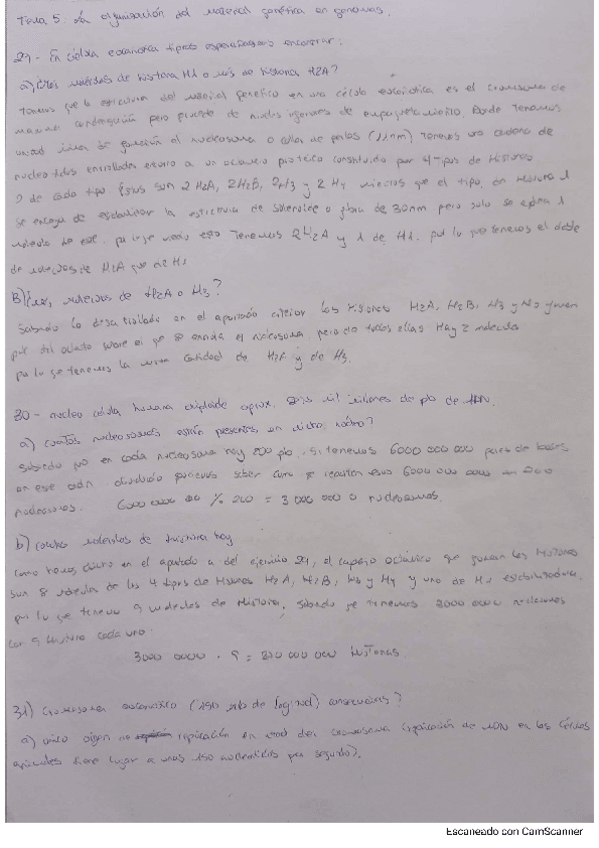 Tema 5. La organización del material genético en genomas.
29- En célula eucariota típica esperaríamos encontrar:
a) ¿Más moléculas de histona H1 o más de histona H2A?
Tenemos que la estructura del material genético en una célula eucariótica es el cromosoma de
máxima condensación pero pasando de niveles de empaquetamiento. Donde tenemos
el nucleosoma o collar de perlas (11nm), tenemos una cadena de
nucleotidos enrollados entorno a un octamero proteico constituido por 4 tipos de Histonas
2 de cada tipo. Estas son 2 H2A, 2H2B, 2H3 y 2 H4 mientras que el tipo de histona 1
se encarga de estabilizar la estructura de solenoide o fibra de 30nm pero solo se 1
molécula por lo que tenemos 2H2A y 1 de H1. por lo que tenemos el doble
de moléculas de H2A que de H1
B) ¿más moléculas de H2A o H3?
Sabiendo lo desarrollado en el apartado anterior las histonas H2A, H2B, H3 y H4 forman
parte del octamero sobre el que se enrolla el nucleosoma, pero de todas ellas hay 2 moléculas
por lo que tenemos la misma cantidad de H2A y de H3.
30- núcleo célula humana diploide aprox. seis mil millones de pb de ADN.
a) cuantos nucleosomas están presentes en dicho núcleo?
Sabiendo que en cada nucleosoma hay 200 pb, si tenemos 6000 000 000 pares de bases
en este adn dividido podremos saber como se reparten esos 6000 000 000 en 200
nucleosomas. 6000 000 000 % 200 = 3 000 000 0 nucleosomas.
b) cuantas moléculas de histona hay
Como hemos dicho en el apartado a del ejercicio 29, el cuerpo octamérico que forman las Histonas
son 8 moléculas de los 4 tipos de Histonas H2A, H2B, H3 y H4 y uno de H1 estabilizadora.
por lo que tenemos 9 moléculas de Histona, sabiendo que tenemos 3000 0000 nucleosomas
con 9 histonas cada uno.
3000 0000 · 9 = 270 000 000 Histonas
31) Cromosoma eucariótico (de longitud) consecuencias?
a) único origen replicación en mitad del cromosoma (replicación de ADN en las células
animales tiene lugar a unos 150 nucleotidos por segundo).
Escaneado con CamScanner